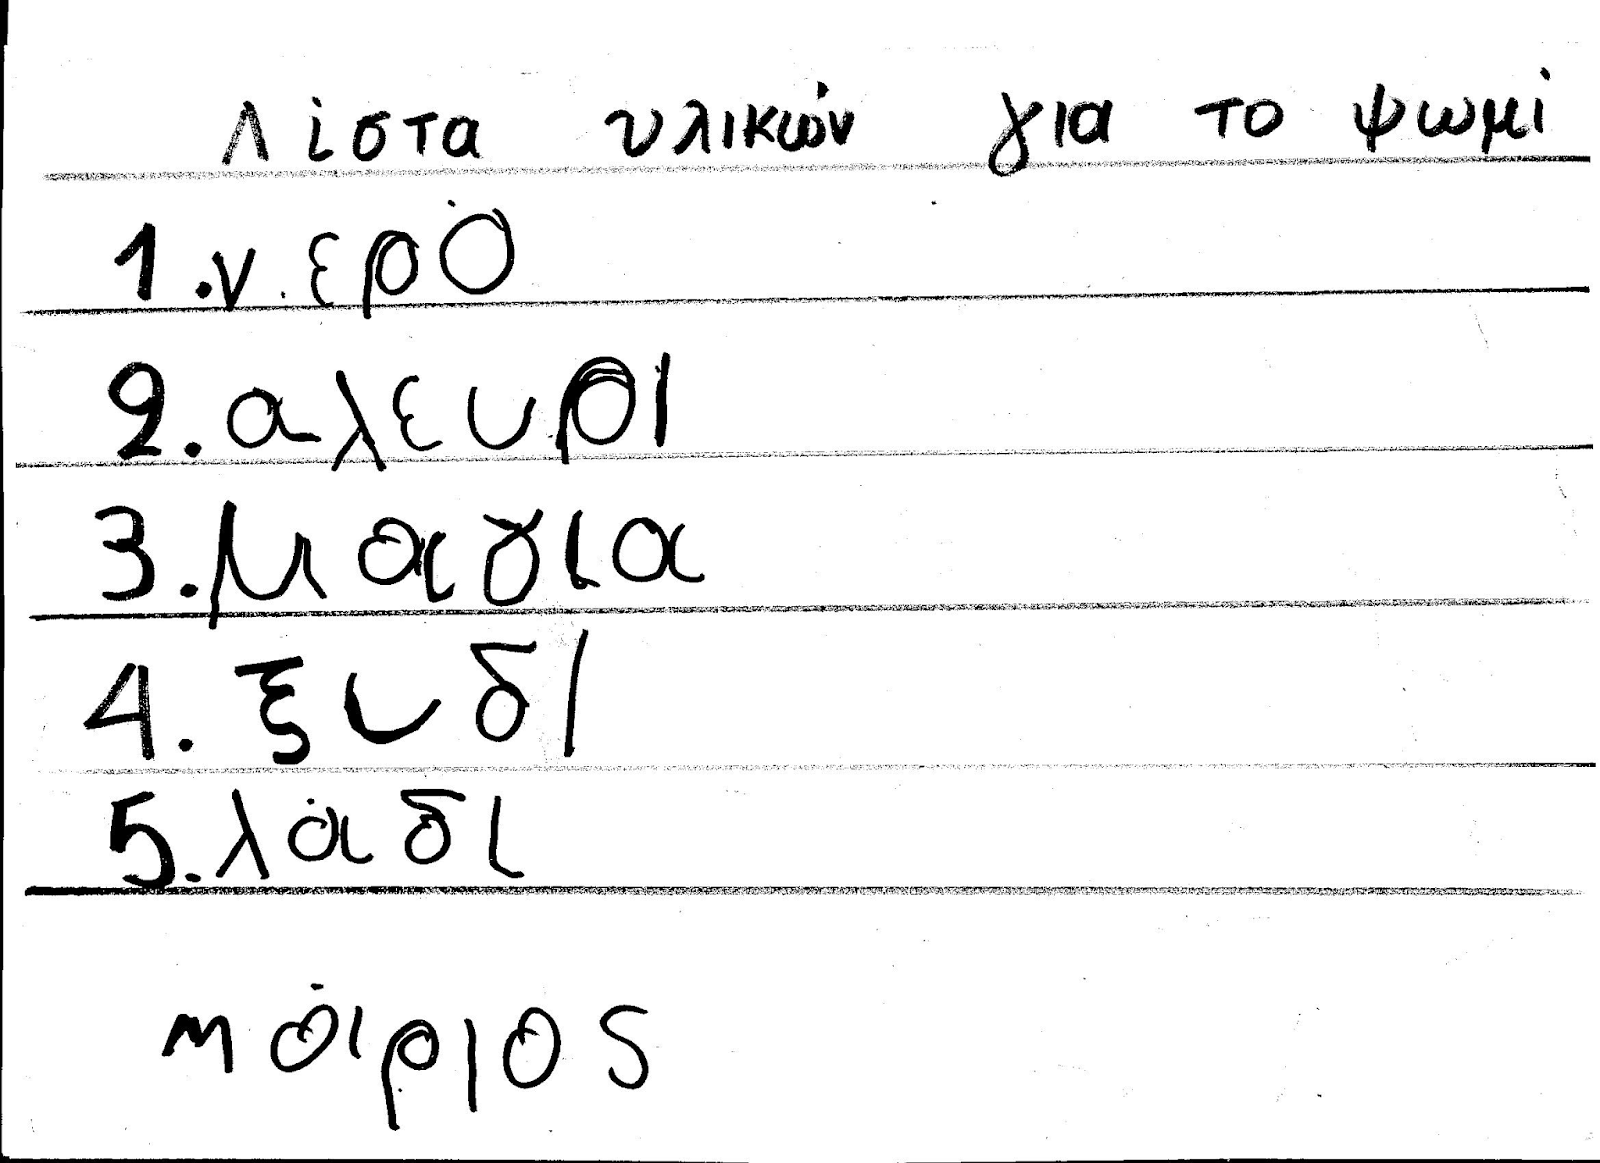 Λίστα υλικών για το ψωμί
1. νερό
2. αλευρι
3. μαγια
4. ξυδι
5. λάδι
μάριος